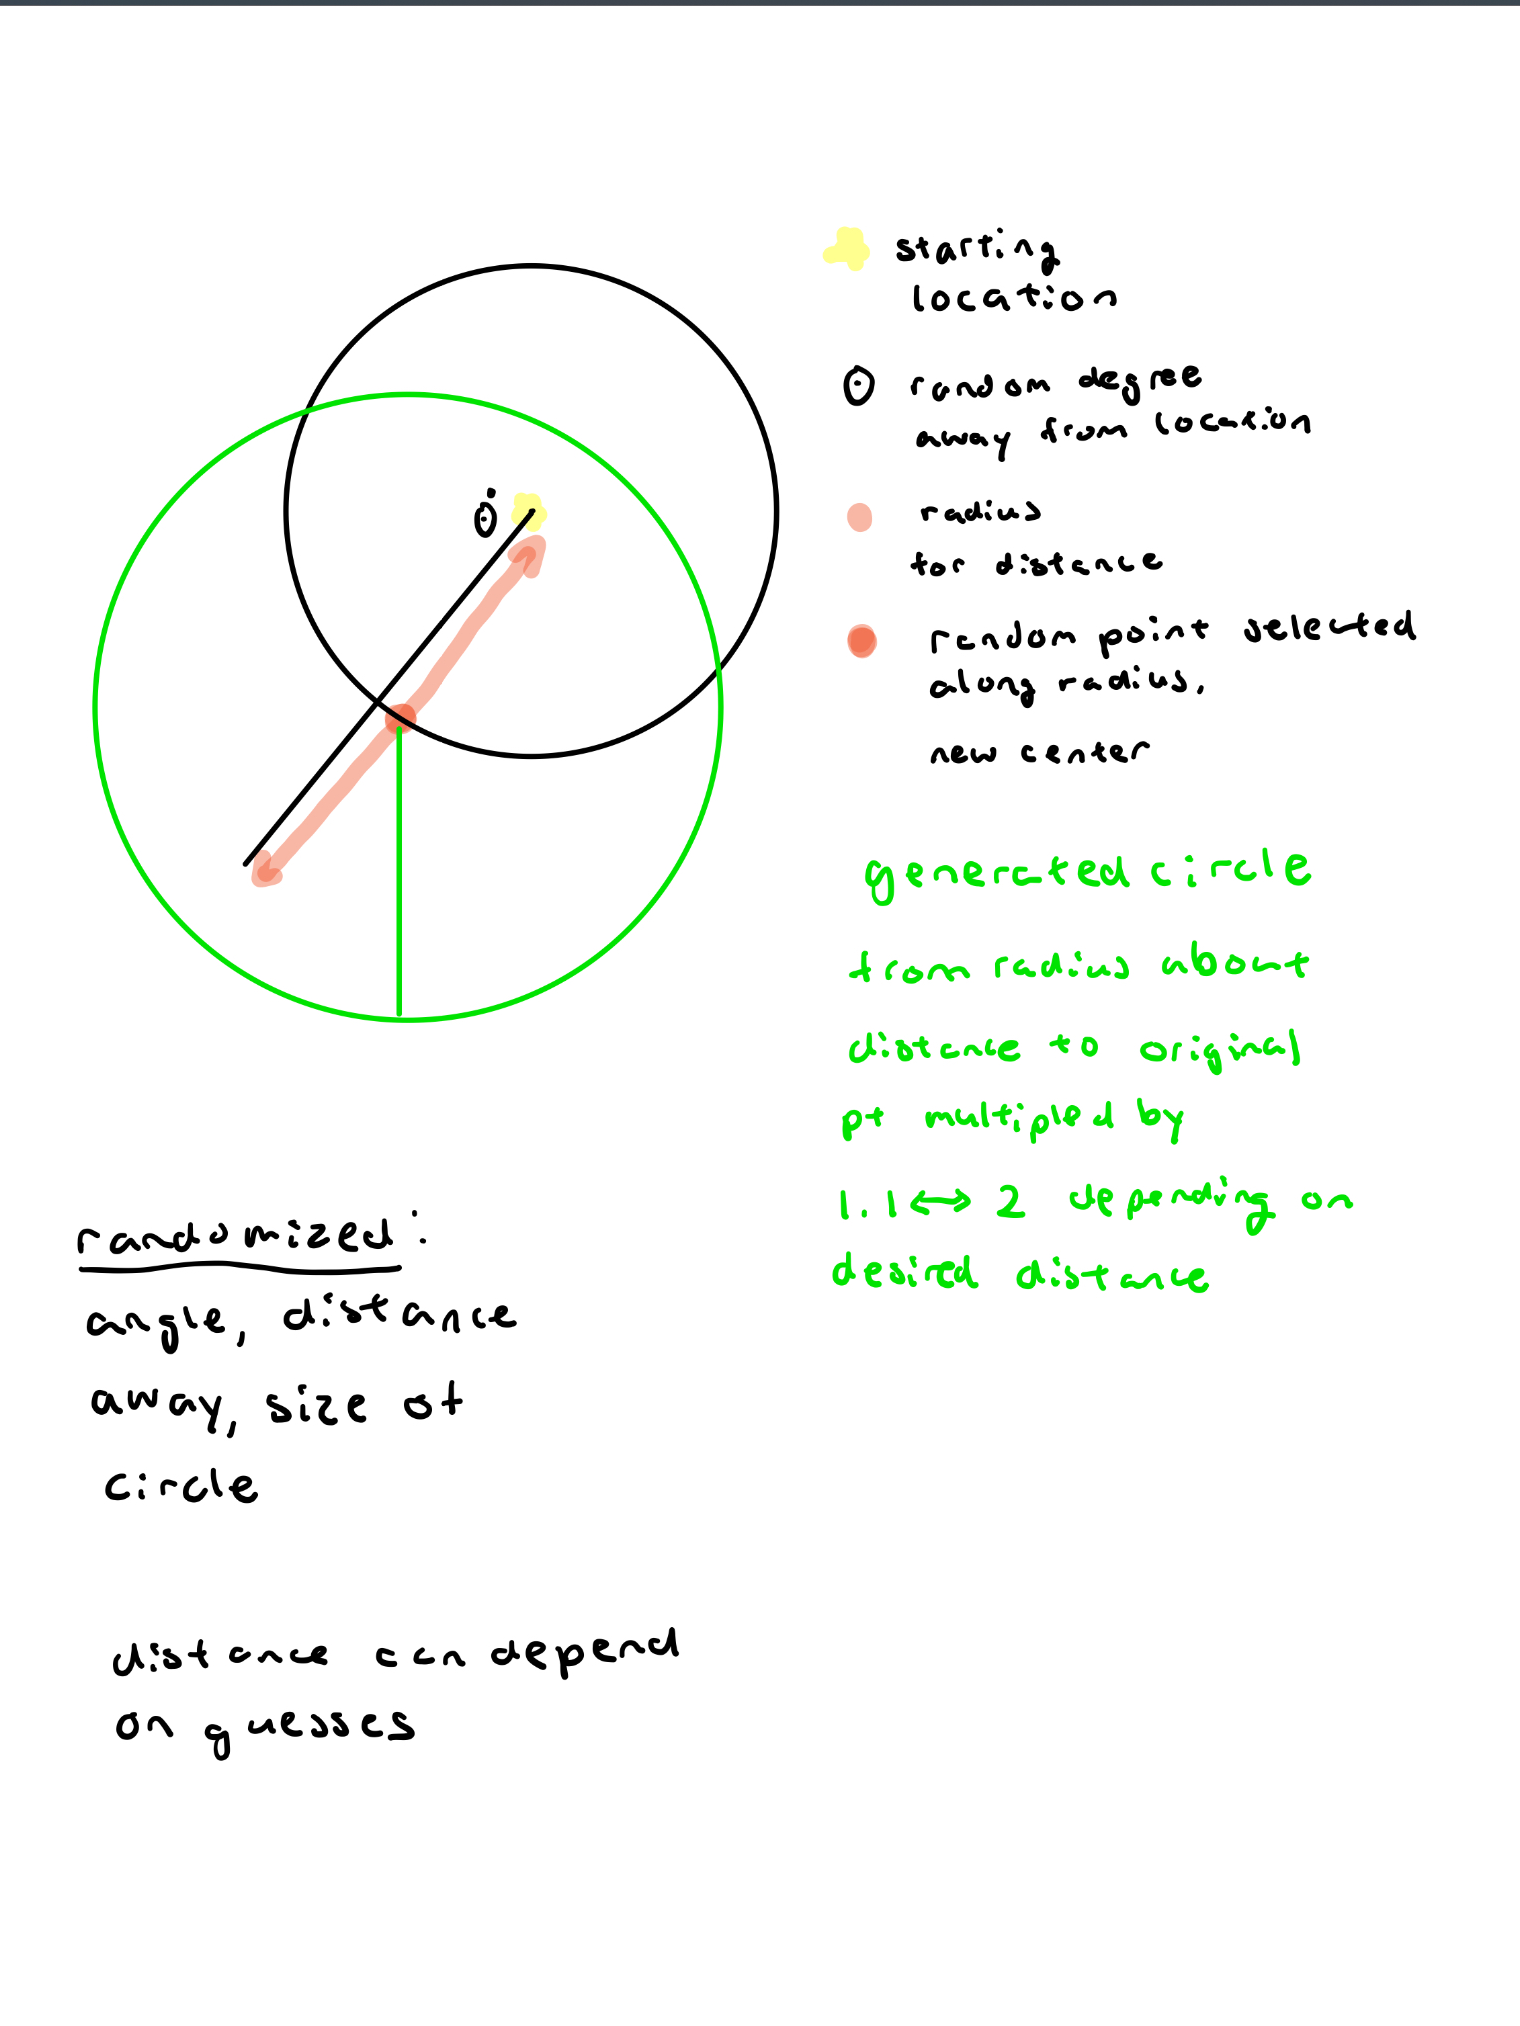 starting
location
random degree
away from location
radius
for distance
random point selected
along radius,
new center
generated circle
from radius about
distance to original
pt multipled by
1.1 ↔ 2 depending on
desired distance
randomized:
angle, distance
away, size of
circle
distance can depend
on guesses